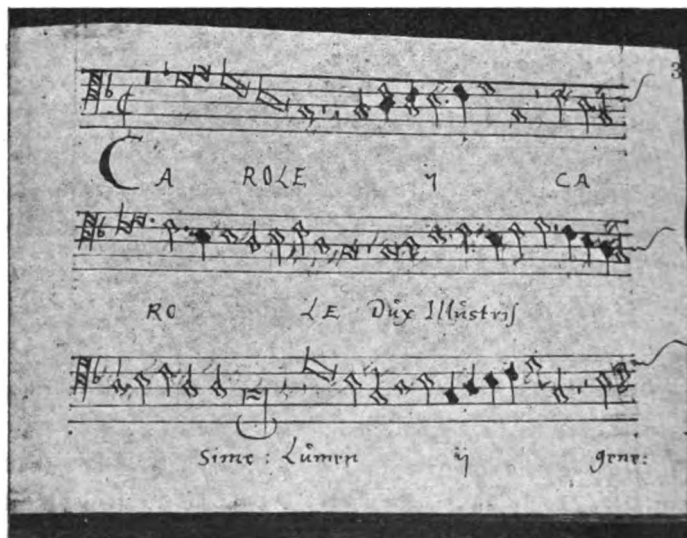 3
CA ROLE ij CA
RO LE Dux Illustris
sime: Lumen ij gene: